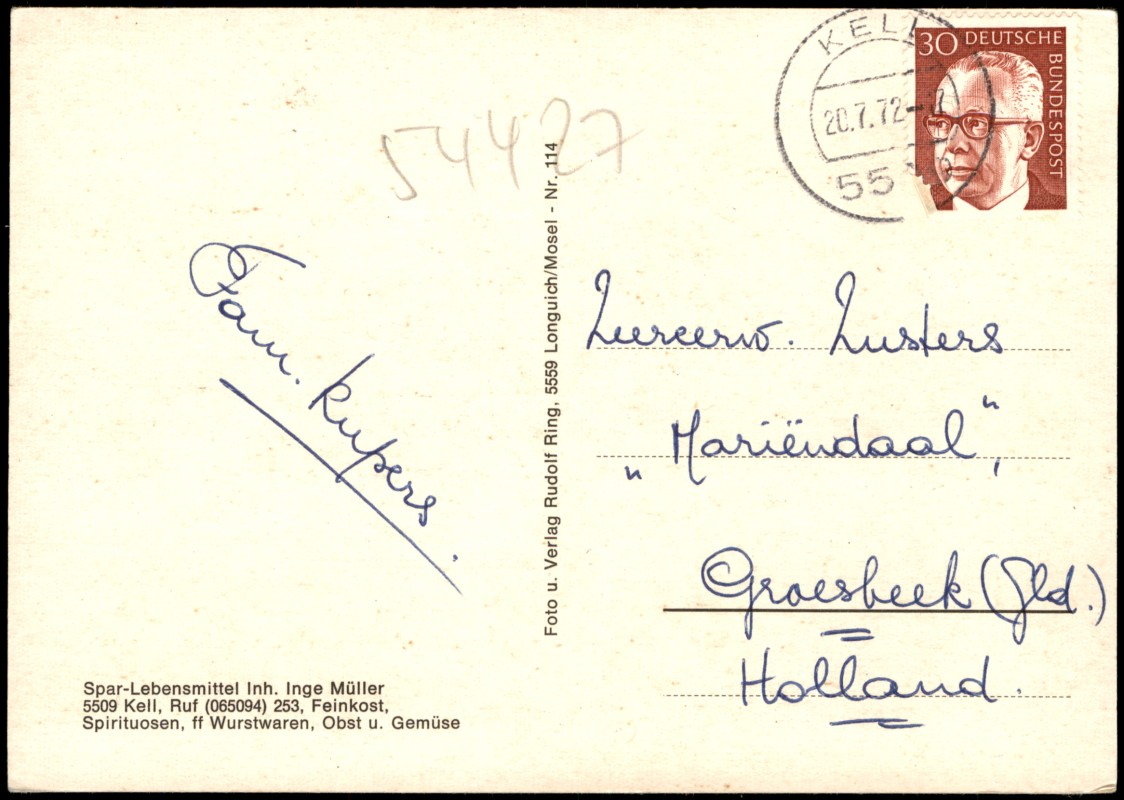 KELL
20.7.72
55
30 DEUTSCHE
BUNDESPOST
54427
Fam. Kupers.
Foto u. Verlag Rudolf Ring, 5559 Longuich/Mosel - Nr. 114
Zusters
„Mariëndaal",
Groesbeek (Gld.)
Holland.
Spar-Lebensmittel Inh. Inge Müller
5509 Kell, Ruf (065094) 253, Feinkost,
Spirituosen, ff Wurstwaren, Obst u. Gemüse